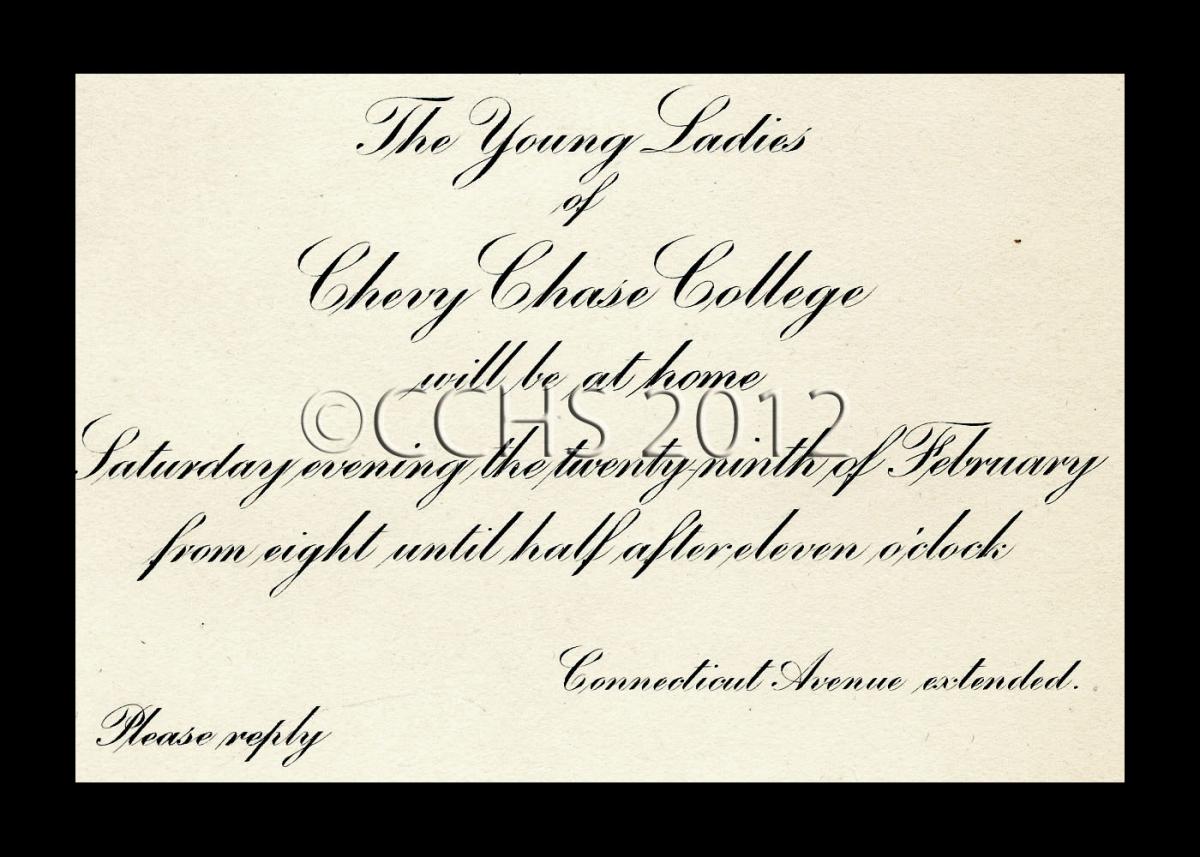 The Young Ladies
of
Chevy Chase College
will be at home
©CCHS 2012
Saturday evening the twenty-ninth of February
from eight until half after eleven o'clock
Connecticut Avenue extended.
Please reply